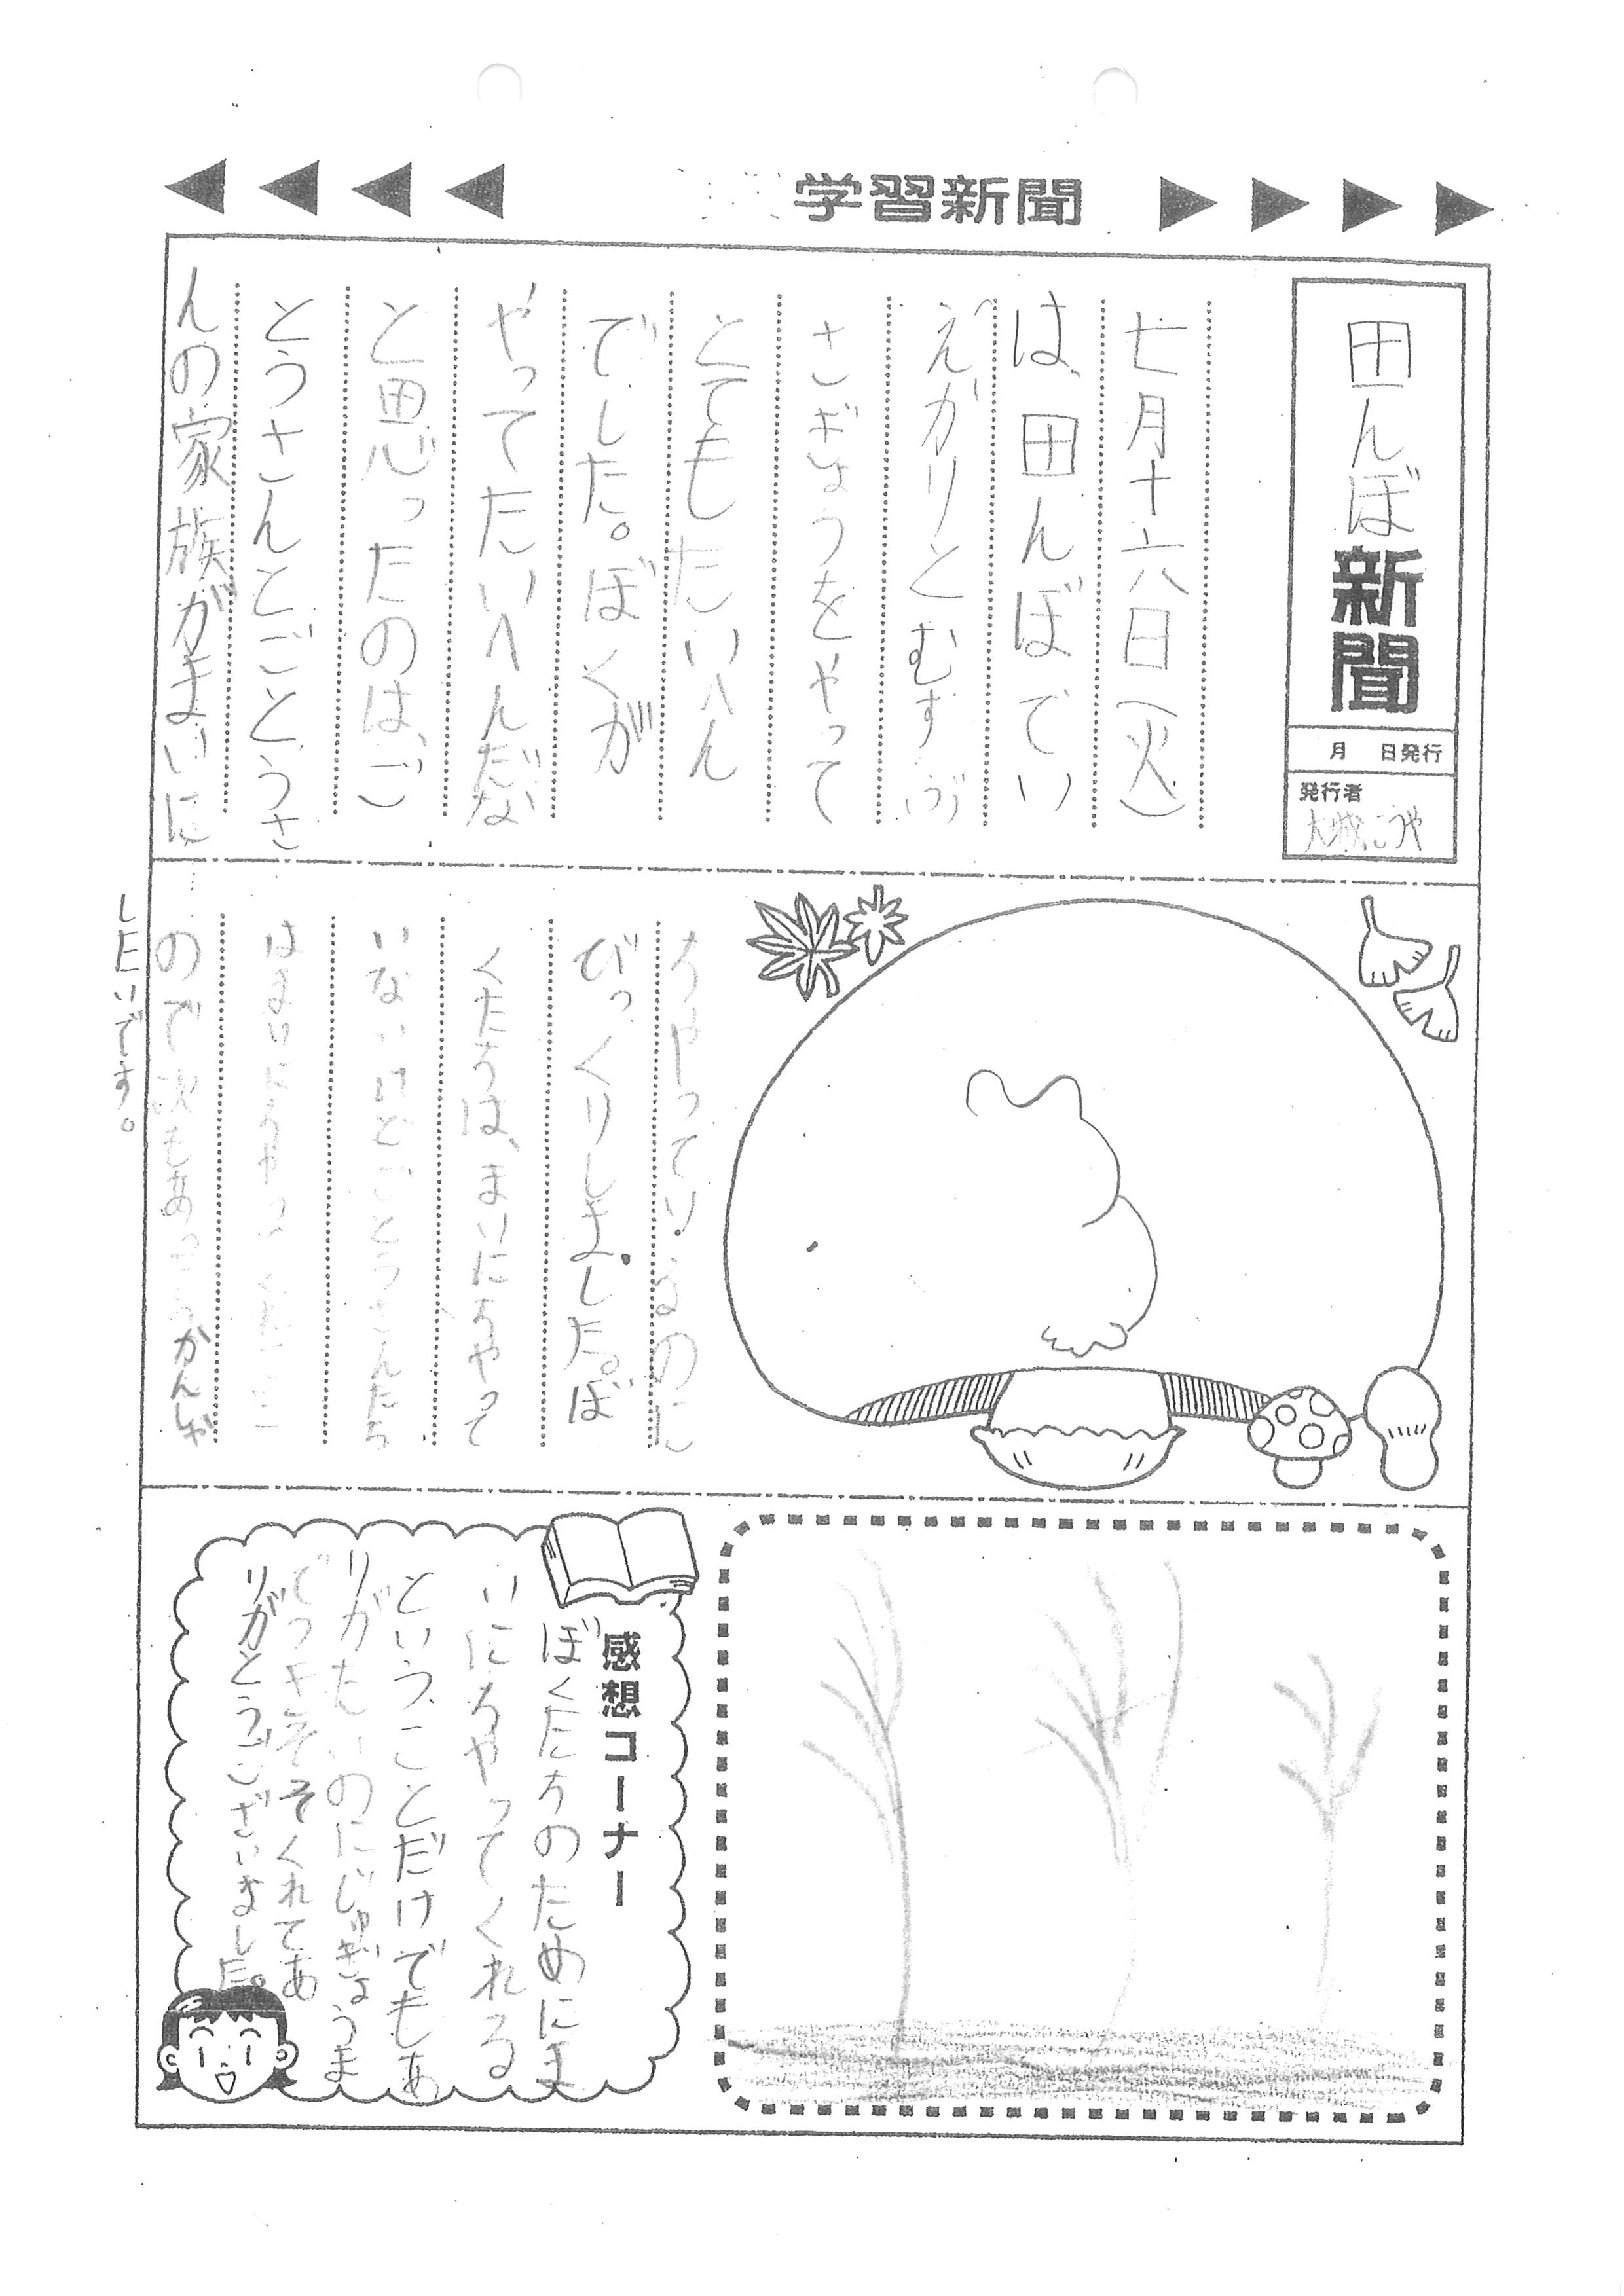 学習新聞
田んぼ新聞
月 日発行
発行者
こうや
七月十六日(火)
は、田んぼでい
ねかりとむすぶ
さぎょうをやって
とてもたいへん
でした。ぼくが
やってたいへんだな
と思ったのは、ご
とうさんとごとうさ
んの家族がまいに
ちやっているのに
びっくりしました。ぼ
くたちは、まいにちやって
いないけどごとうさんたち
はまいにちやっ
ので次もあっ かんしゃ
したいです。
感想コーナー
ぼくたちのためにま
いにちやってくれる
ということだけでもあ
りがたいのにじゅぎょうま
でつ くれてあ
りがとうございました。